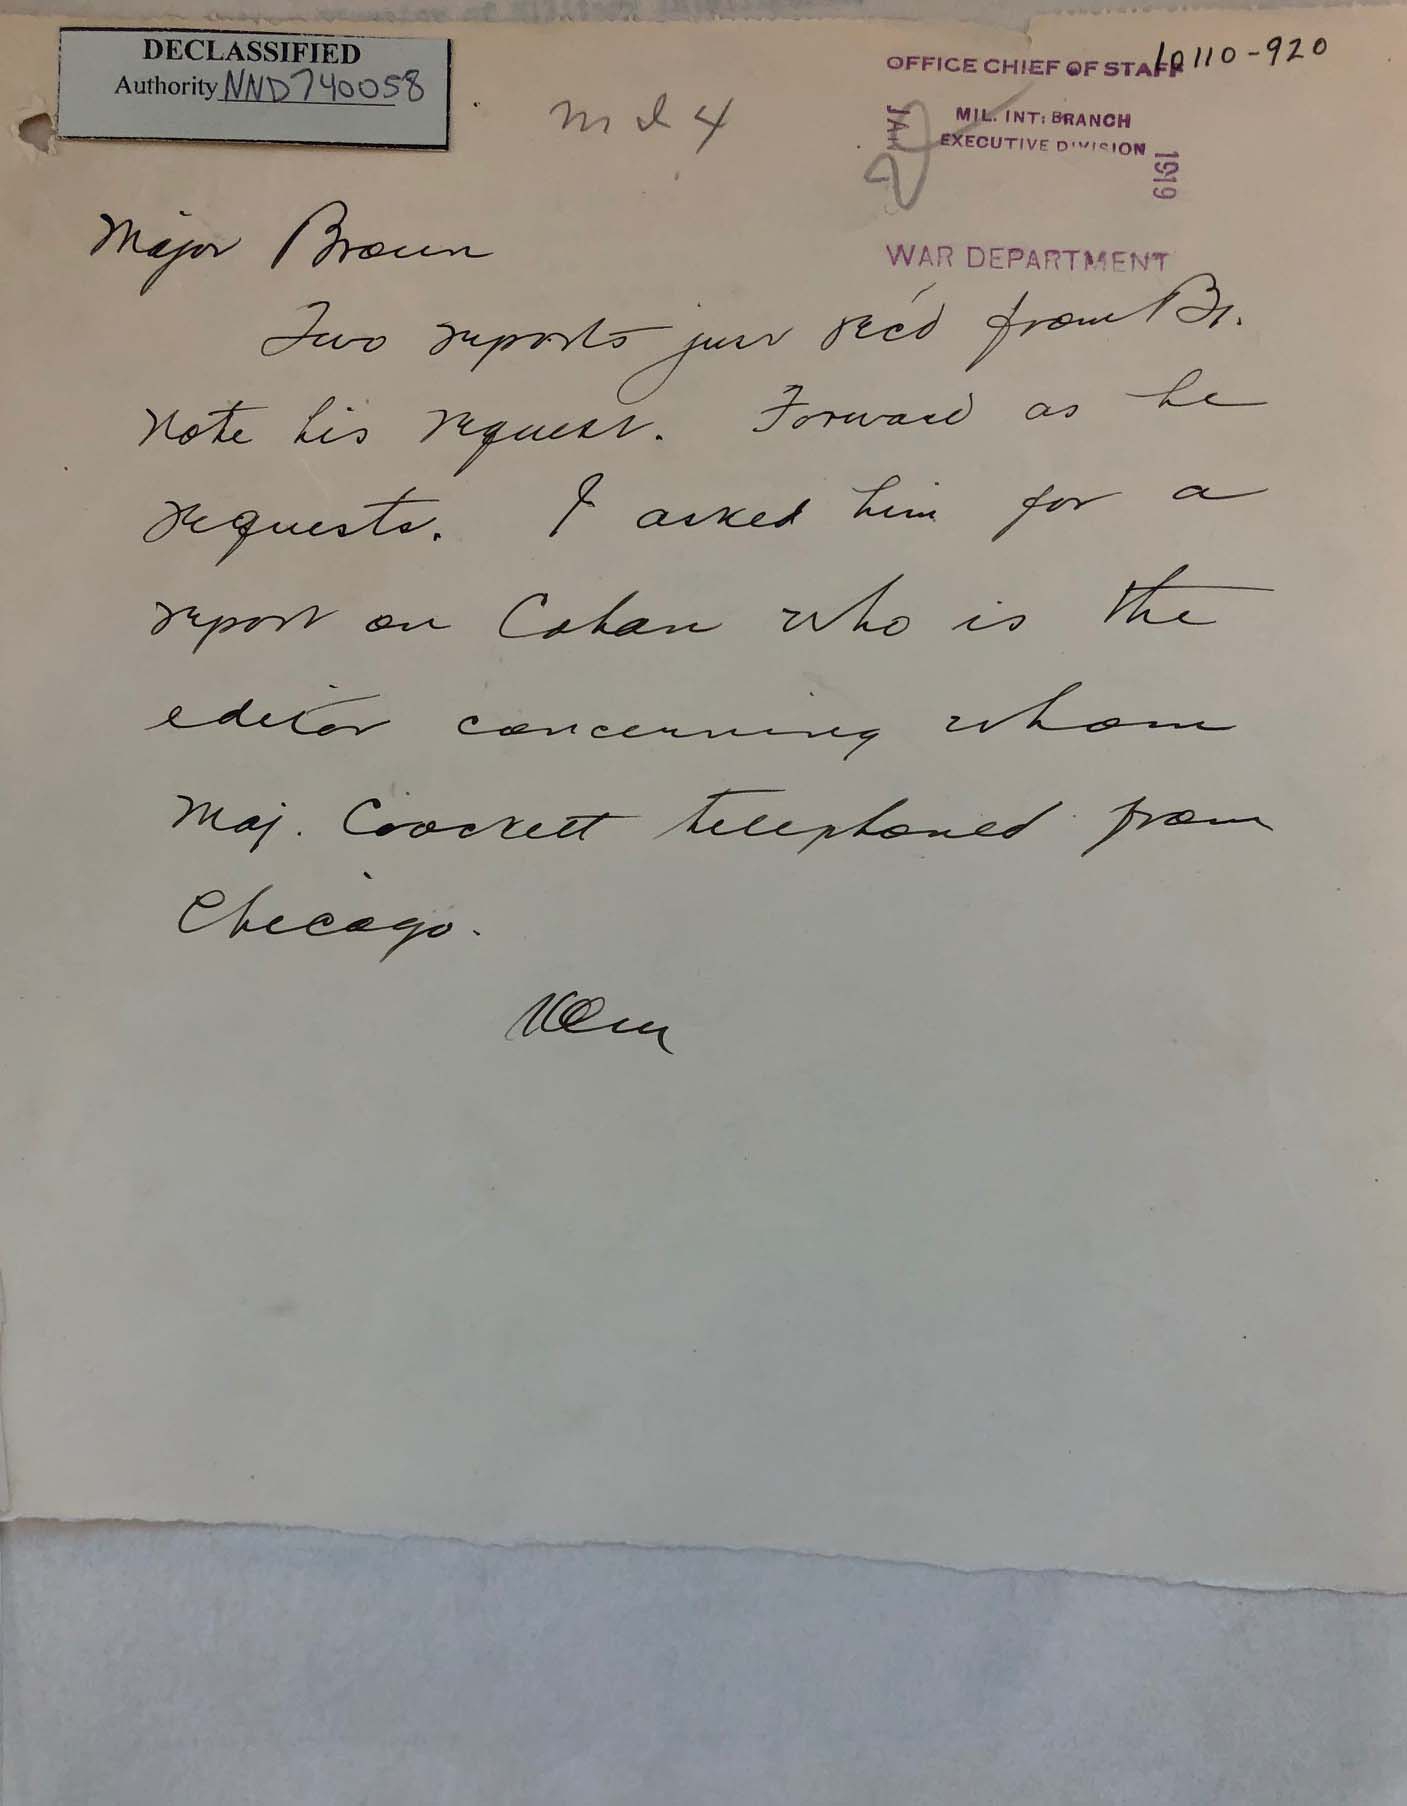 DECLASSIFIED
Authority NND740058
10110-920
OFFICE CHIEF OF STAFF
M I 4
MIL. INT. BRANCH
EXECUTIVE DIVISION
JAN 2 1919
WAR DEPARTMENT
Major Brown
Two reports just rec'd from Br.
Note his request. Forward as he
requests. I asked him for a
report on Cohan who is the
editor concerning whom
Maj. Crockett telephoned from
Chicago.